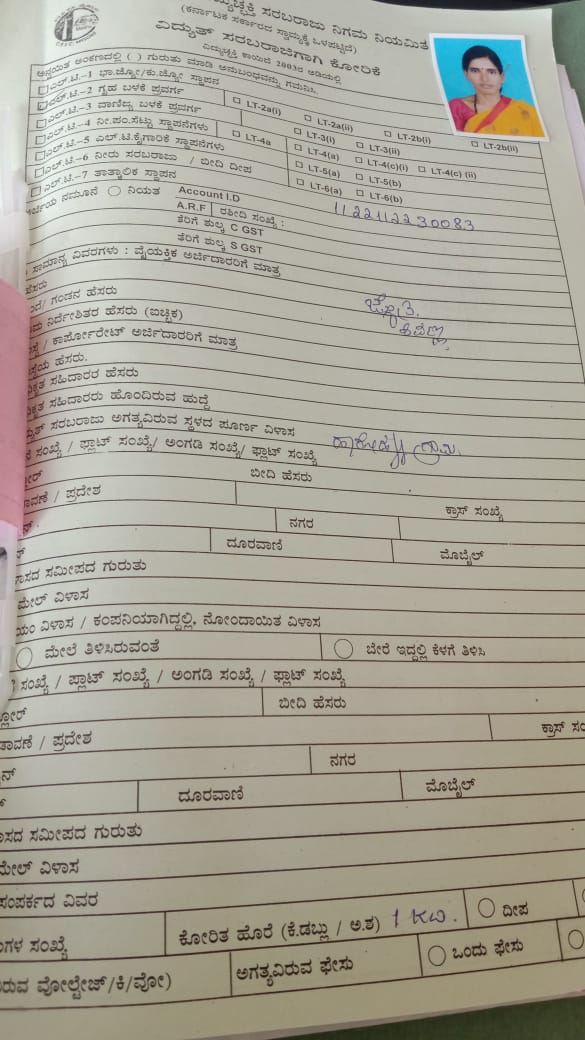 ಸರಬರಾಜು ನಿಗಮ ನಿಯಮಿತ
(ಕರ್ನಾಟಕ ಸರ್ಕಾರದ ಸ್ವಾಮ್ಯಕ್ಕೆ ಒಳಪಟ್ಟಿದೆ)
ವಿದ್ಯುತ್ ಸರಬರಾಜಿಗಾಗಿ ಕೋರಿಕೆ
ವಿದ್ಯುಚ್ಛಕ್ತಿ ಕಾಯಿದೆ 2003ರ ಅಡಿಯಲ್ಲಿ
ಅನ್ವಯಿತ ಅಂಕಣದಲ್ಲಿ ( ) ಗುರುತು ಮಾಡಿ ಅನುಬಂಧವನ್ನು ಗಮನಿಸಿ.
ಎಲ್.ಟಿ.-1 ಭಾ.ಜ್ಯೋ/ಕು.ಜ್ಯೋ ಸ್ಥಾಪನ
ಎಲ್.ಟಿ.-2 ಗೃಹ ಬಳಕೆ ಪ್ರವರ್ಗ LT-2a(i) LT-2a(ii) LT-2b(i) LT-2b(ii)
ಎಲ್.ಟಿ.-3 ವಾಣಿಜ್ಯ ಬಳಕೆ ಪ್ರವರ್ಗ LT-3(i) LT-3(ii)
ಎಲ್.ಟಿ.-4 ನೀ.ಪಂ.ಸೆಟ್ಟು ಸ್ಥಾಪನೆಗಳು LT-4a LT-4(a) LT-4(c)(i) LT-4(c) (ii)
ಎಲ್.ಟಿ.-5 ಎಲ್.ಟಿ.ಕೈಗಾರಿಕೆ ಸ್ಥಾಪನೆಗಳು LT-5(a) LT-5(b)
ಎಲ್.ಟಿ.-6 ನೀರು ಸರಬರಾಜು / ಬೀದಿ ದೀಪ LT-6(a) LT-6(b)
ಎಲ್.ಟಿ.-7 ತಾತ್ಕಾಲಿಕ ಸ್ಥಾಪನ
ನಮೂನೆ ನಿಯತ Account I.D 1122112230083
A.R.F ರಶೀದಿ ಸಂಖ್ಯೆ :
ತೆರಿಗೆ ಶುಲ್ಕ C GST
ತೆರಿಗೆ ಶುಲ್ಕ S GST
ಸಾಮಾನ್ಯ ವಿವರಗಳು : ವೈಯಕ್ತಿಕ ಅರ್ಜಿದಾರರಿಗೆ ಮಾತ್ರ
ಹೆಸರು
ಗಂಡನ ಹೆಸರು
ನಿರ್ದೇಶಿತರ ಹೆಸರು (ಐಚ್ಛಿಕ)
/ ಕಾರ್ಪೋರೇಟ್ ಅರ್ಜಿದಾರರಿಗೆ ಮಾತ್ರ
ಹೆಸರು.
ಸಹಿದಾರರ ಹೆಸರು
ಸಹಿದಾರರು ಹೊಂದಿರುವ ಹುದ್ದೆ
ಸರಬರಾಜು ಅಗತ್ಯವಿರುವ ಸ್ಥಳದ ಪೂರ್ಣ ವಿಳಾಸ
ಸಂಖ್ಯೆ / ಫ್ಲಾಟ್ ಸಂಖ್ಯೆ/ ಅಂಗಡಿ ಸಂಖ್ಯೆ/ ಫ್ಲಾಟ್ ಸಂಖ್ಯೆ
ಬೀದಿ ಹೆಸರು
/ ಪ್ರದೇಶ ಕ್ರಾಸ್ ಸಂಖ್ಯೆ
ನಗರ
ದೂರವಾಣಿ ಮೊಬೈಲ್
ಸಮೀಪದ ಗುರುತು
ಮೇಲ್ ವಿಳಾಸ
ವಿಳಾಸ / ಕಂಪನಿಯಾಗಿದ್ದಲ್ಲಿ, ನೋಂದಾಯಿತ ವಿಳಾಸ
ಮೇಲೆ ತಿಳಿಸಿರುವಂತೆ ಬೇರೆ ಇದ್ದಲ್ಲಿ ಕೆಳಗೆ ತಿಳಿಸಿ
ಸಂಖ್ಯೆ / ಪ್ಲಾಟ್ ಸಂಖ್ಯೆ / ಅಂಗಡಿ ಸಂಖ್ಯೆ / ಫ್ಲಾಟ್ ಸಂಖ್ಯೆ
ಬೀದಿ ಹೆಸರು
/ ಪ್ರದೇಶ ಕ್ರಾಸ್
ನಗರ
ದೂರವಾಣಿ ಮೊಬೈಲ್
ಸಮೀಪದ ಗುರುತು
ಮೇಲ್ ವಿಳಾಸ
ಸಂಪರ್ಕದ ವಿವರ
ಸಂಖ್ಯೆ ಕೋರಿತ ಹೊರೆ (ಕೆ.ಡಬ್ಲು / ಅ.ಶ) 1 KW. ದೀಪ
ವೋಲ್ಟೇಜ್/ಕಿ/ವೋ) ಅಗತ್ಯವಿರುವ ಫೇಸು ಒಂದು ಫೇಸು